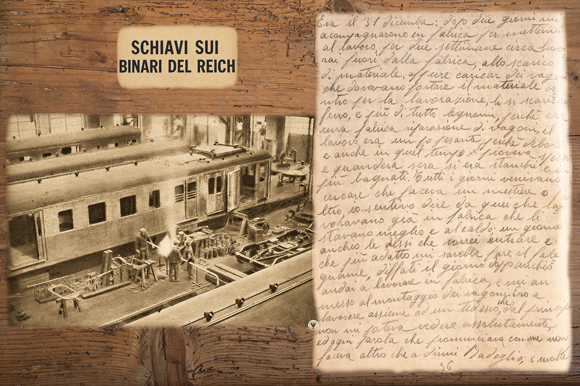 SCHIAVI SUI
BINARI DEL REICH
Era il 31 dicembre: dopo due giorni mi
accompagnarono in fabrica per mettermi
al lavoro, per due settimane circa lavo
rai fuori dalla fabrica, allo scarico
di materiale, oppure caricar dei vagoni
che dovevano portare il materiale de
ntro per la lavorazione, lì si scaric
ferro, e più di tutto legnami, perché era
una fabrica riparazione di vagoni, il
lavoro era un po pesante, perché
e anche in quel tempo pioveva spesso
e quand'era sera si era stanchi e
più bagnati. Tutti i giorni venivano
cercare chi faceva un mestiere o
ltro, io sentivo dire da quei che la
voravano già in fabrica che lì
stavano meglio e al caldo: un giorno
anchio le dissi che vorrei entrare e
che più adatto mi sarebbe fare il fale
gname, diffati il giorno dopo
andai a lavorare in fabrica, e mi an
messo al montaggio dei vagoni,
lavorare assieme ad un tedesco, dal principio
non mi poteva vedere assolutamente,
ed ogni parola che pronunciava con me non
faceva altro che a dirmi Badoglio; e molte
36